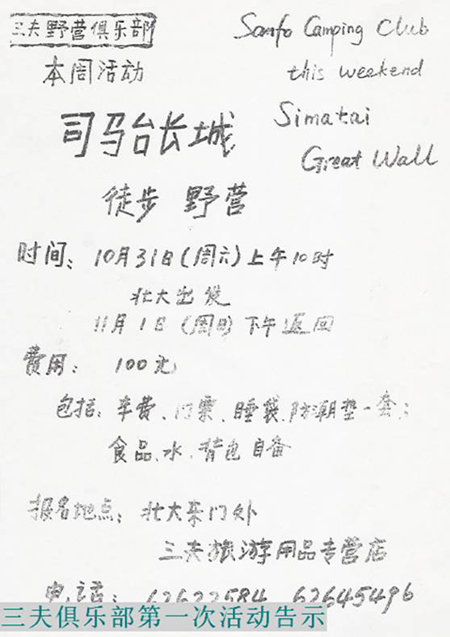 三夫野营俱乐部
Sanfo Camping Club
本周活动
this weekend
司马台长城
Simatai
Great Wall
徒步 野营
时间: 10月31日(周六)上午10时
北大出发
11月1日(周日)下午返回
费用: 100元
包括: 车费、门票、睡袋、防潮垫一套;
食品、水、背包自备
报名地点: 北大东门外
三夫旅游用品专营店
电话: 62622584 62645496
三夫俱乐部第一次活动告示